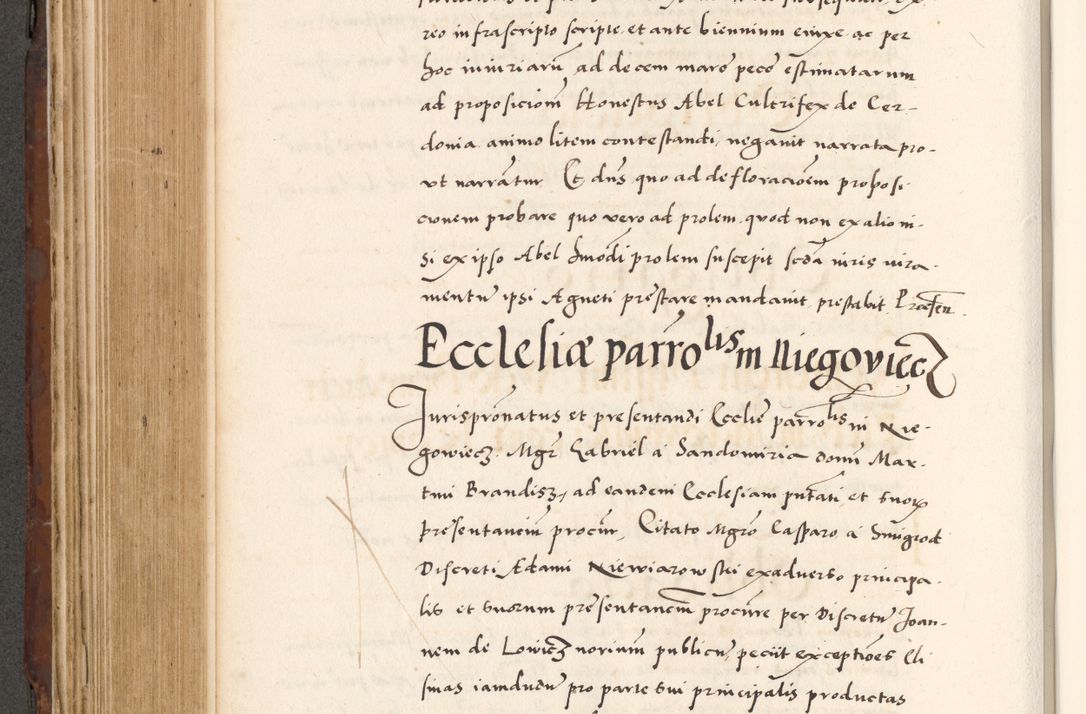 reo infrascripto scripte, et ante biennium eiusce ac per
hoc iniuriarū ad decem marc̄ pecc̄ estimatarum
ad proposicionē Honestus Abel Cultrifex de Cer-
donia animo litem contestandi, negauit narrata pro-
ut narrāntur. Et dn̄s quo ad defloracōem proposi-
cionem probare quo vero ad prolem, quod non ex alio ni-
si ex ipso Abel hmōdi prolem suscepit scdā iuris iura-
mentū ipsi Agneti prestare mandauit, prestabit
Ecclesiæ parrolis in Niegoviecz
Jurispronatus et presentandi Ecclie parrolis in Nie-
gowiecz. Mgr̄ Gabriel a Sandomiria donī Mar-
tini Brandisz, ad eandem Ecclesiam pn̄tati et suorꝝ
presentanciū procūr. Citato Mgrō Casparo a Smigrod
Discreti Adami Niewiarowski ex aduerso principa-
lis et suorum presentanciū procūre per Discretū Joan-
nem de Lowicz notoriūm publicū, peciit exceptōes Eli
sinas iamdudū pro parte sui principalis productas